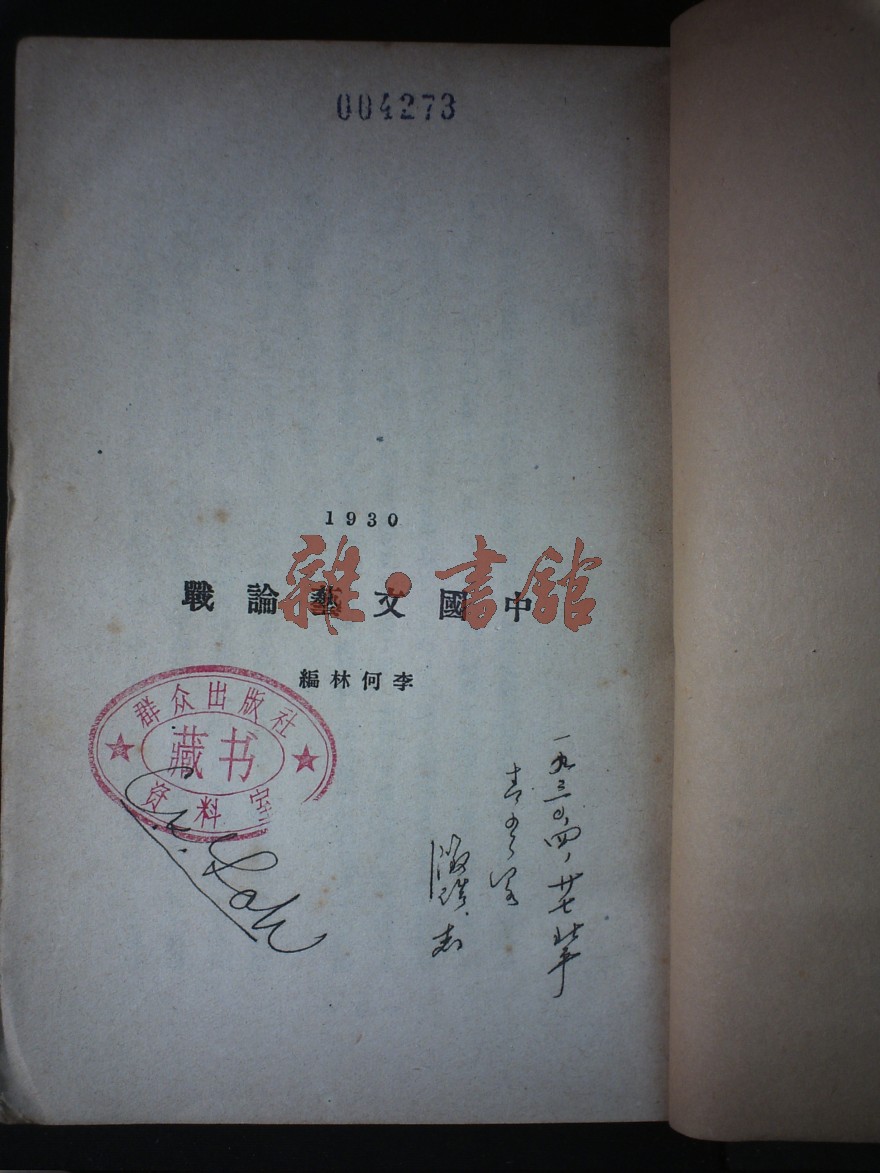 004273
1930
中國文藝論戰
雜·書館
李何林編
群众出版社
藏书
资料室
一九三〇、四、廿七 北平